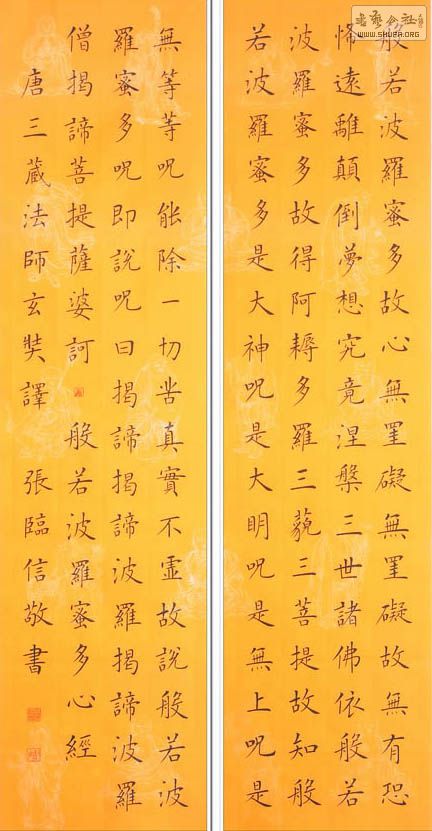 般若波羅蜜多故心無罣礙無罣礙故無有恐
怖遠離顛倒夢想究竟涅槃三世諸佛依般若
波羅蜜多故得阿耨多羅三藐三菩提故知般
若波羅蜜多是大神呪是大明呪是無上呪是
無等等呪能除一切苦真實不虛故說般若波
羅蜜多呪即說呪曰揭諦揭諦波羅揭諦波羅
僧揭諦菩提薩婆訶 般若波羅蜜多心經
唐三藏法師玄奘譯 張臨信敬書
www.SHUFA.ORG